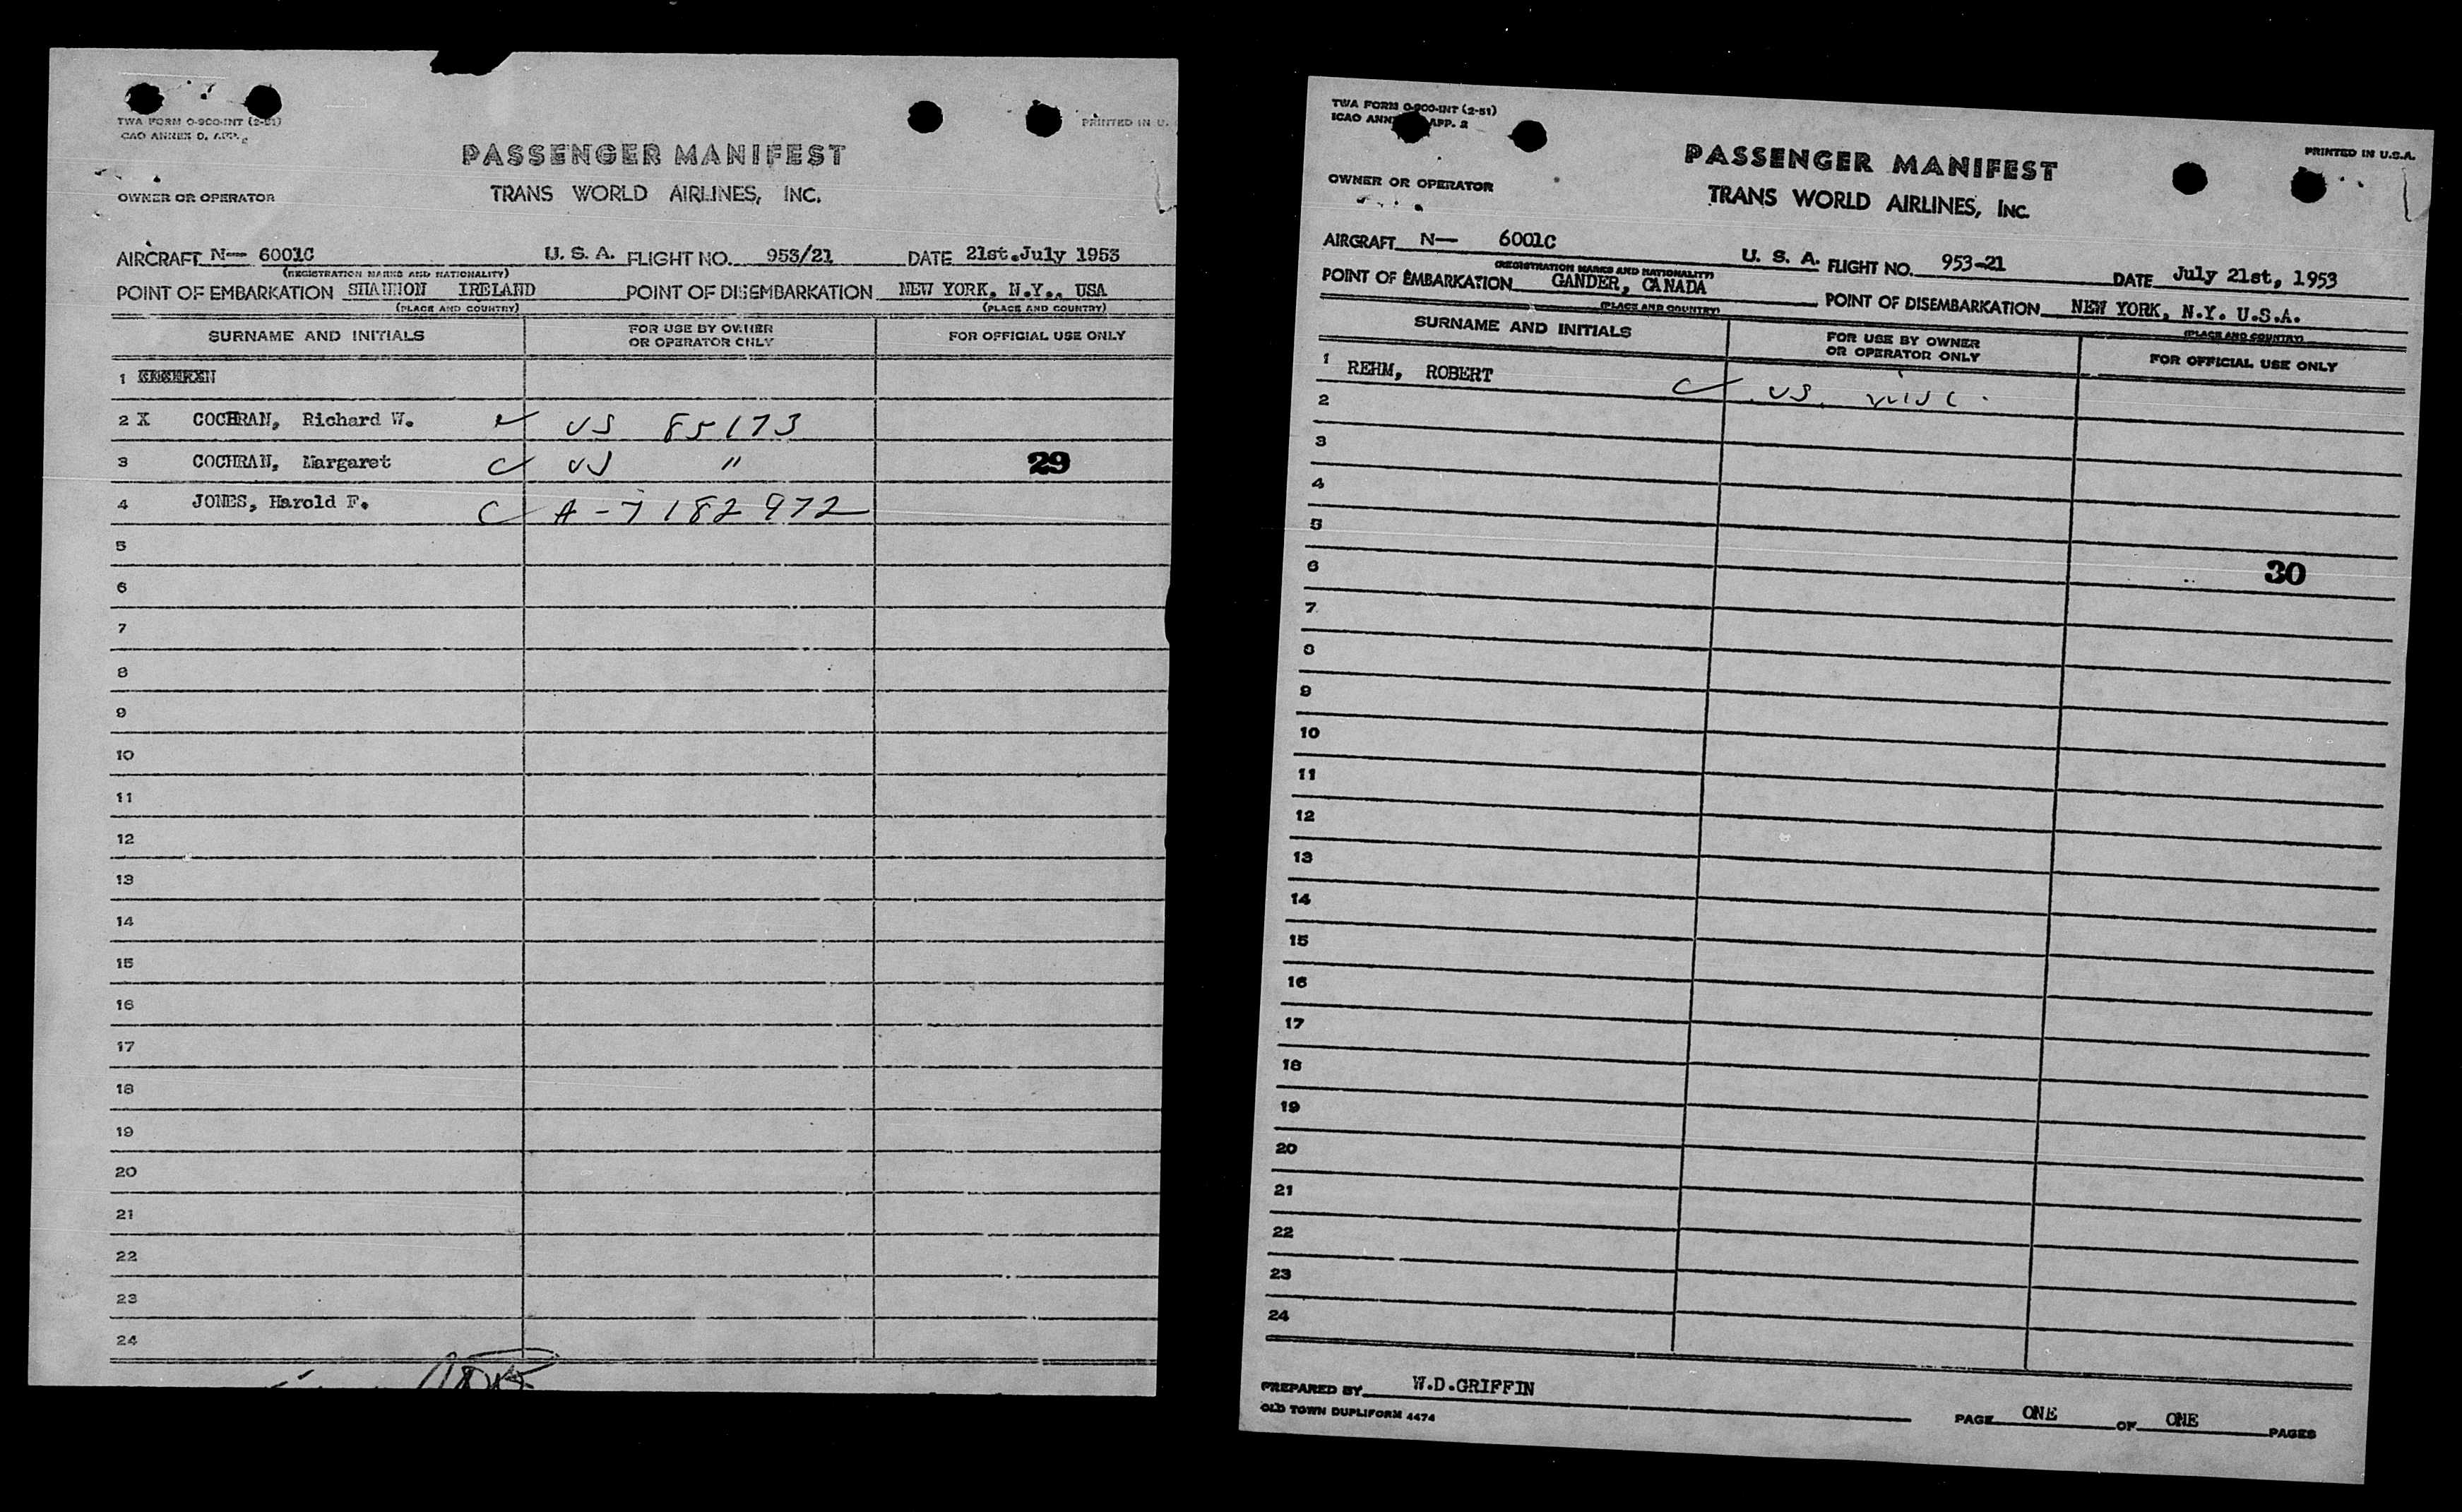 TWA FORM O-900-INT (2-51)
CAO ANNEX 9, APP. 2
PRINTED IN U.
PASSENGER MANIFEST
TRANS WORLD AIRLINES, INC.
OWNER OR OPERATOR
AIRCRAFT N— 6001C U. S. A. FLIGHT NO. 953/21 DATE 21st.July 1953
(REGISTRATION MARKS AND NATIONALITY)
POINT OF EMBARKATION SHANNON IRELAND POINT OF DISEMBARKATION NEW YORK, N.Y., USA
(PLACE AND COUNTRY) (PLACE AND COUNTRY)
SURNAME AND INITIALS FOR USE BY OWNER OR OPERATOR ONLY FOR OFFICIAL USE ONLY
1
2 X COCHRAN, Richard W. US 85173
3 COCHRAN, Margaret US " 29
4 JONES, Harold F. A-7182972
5
6
7
8
9
10
11
12
13
14
15
16
17
18
19
20
21
22
23
24
TWA FORM O-900-INT (2-51)
ICAO ANN APP. 2
PRINTED IN U.S.A.
PASSENGER MANIFEST
TRANS WORLD AIRLINES, INC.
OWNER OR OPERATOR
AIRCRAFT N— 6001C U. S. A. FLIGHT NO. 953-21 DATE July 21st, 1953
(REGISTRATION MARKS AND NATIONALITY)
POINT OF EMBARKATION GANDER, CANADA POINT OF DISEMBARKATION NEW YORK, N.Y. U.S.A.
(PLACE AND COUNTRY) (PLACE AND COUNTRY)
SURNAME AND INITIALS FOR USE BY OWNER OR OPERATOR ONLY FOR OFFICIAL USE ONLY
1 REHM, ROBERT US.
2
3
4
5
6 30
7
8
9
10
11
12
13
14
15
16
17
18
19
20
21
22
23
24
PREPARED BY W.D.GRIFFIN
OLD TOWN DUPLIFORM 4474
PAGE ONE OF ONE PAGES